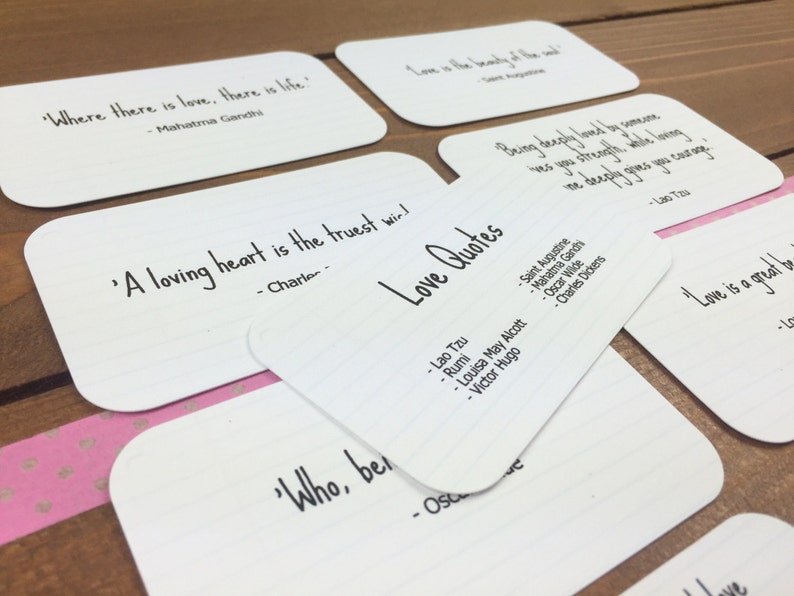 'Where there is love, there is life.'
- Mahatma Gandhi
'Love is the beauty of the soul.'
- Saint Augustine
'Being deeply loved by someone
strength, while loving
deeply gives you courage.'
- Lao Tzu
'A loving heart is the truest
- Charles
Love Quotes
- Lao Tzu
- Rumi
- Louisa May Alcott
- Victor Hugo
- Saint Augustine
- Mahatma Gandhi
- Oscar Wilde
- Charles Dickens
'Love is a great
'Who,
love